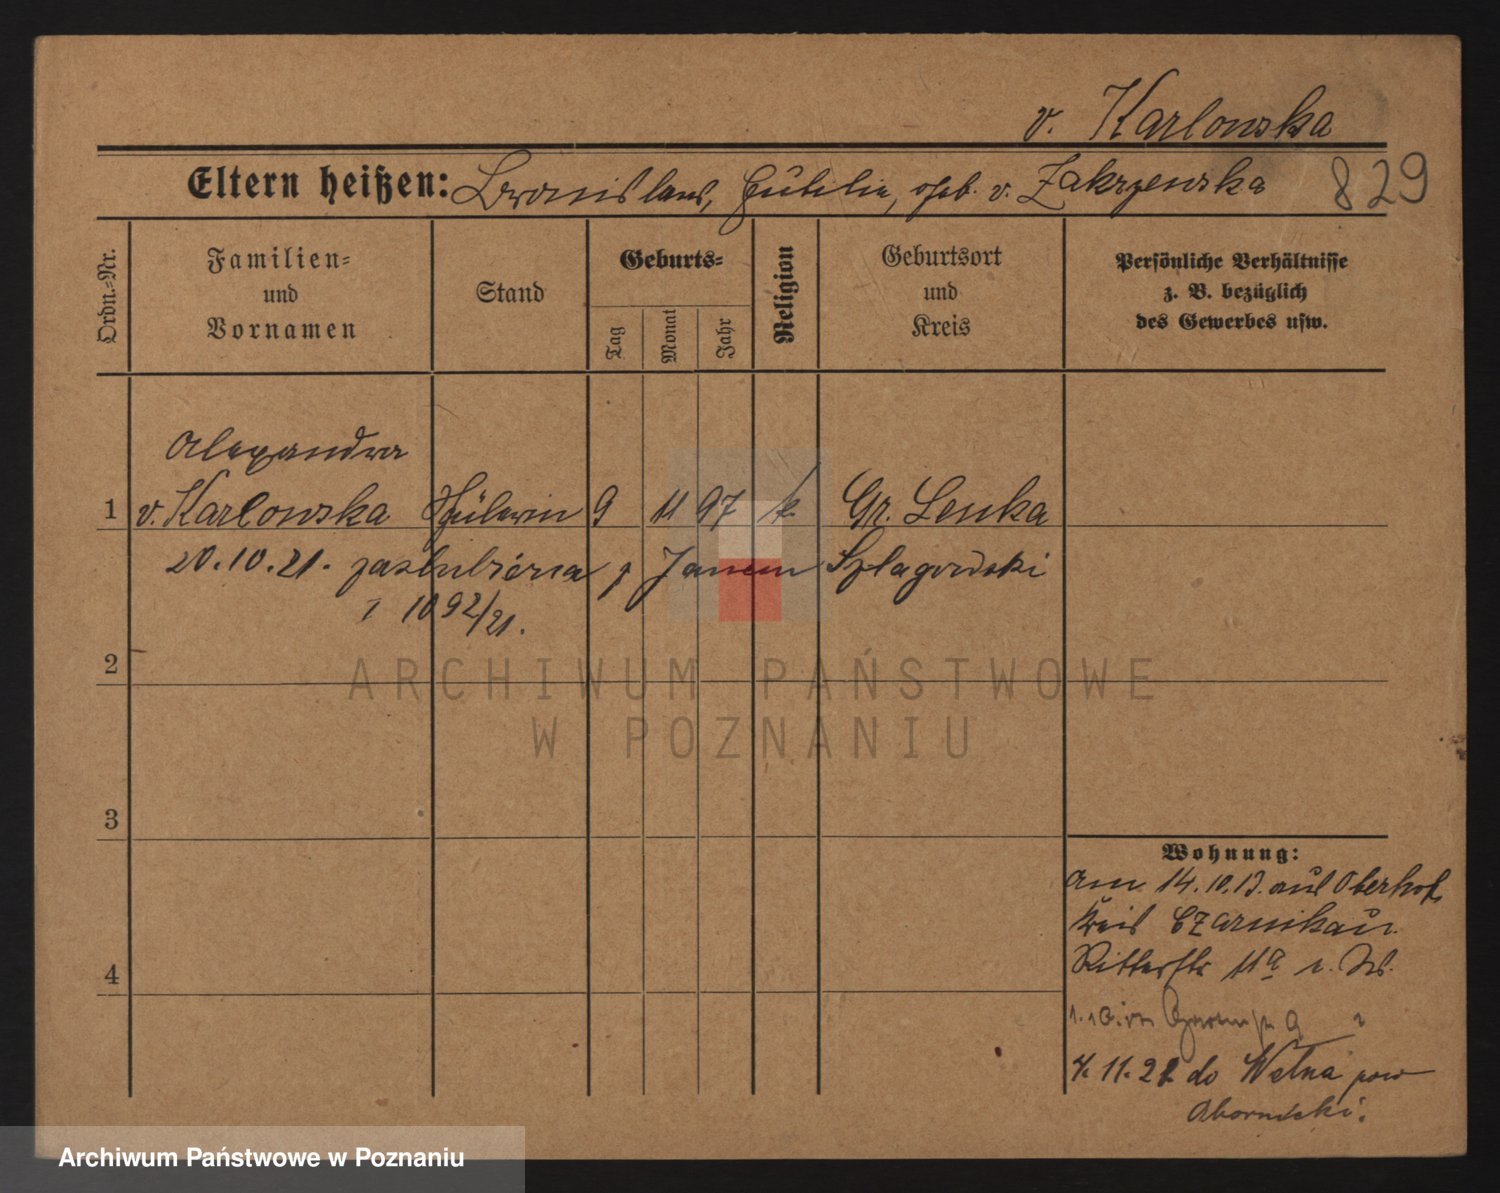 v. Karlowska
Eltern heißen: Bronislaus, geb. v. Zakrzewska 829
Ordn.-Nr.
Familien-
und
Vornamen
Stand
Geburts-
Tag
Monat
Jahr
Religion
Geburtsort
und
Kreis
Persönliche Verhältnisse
z. B. bezüglich
des Gewerbes usw.
Alexandra
1 v. Karlowska Schülerin 9 11 97 k. Gr. Lenka
20.10.21. zaślubiona z Janem Szlagowski
1092/21.
2
ARCHIWUM PAŃSTWOWE
W POZNANIU
3
Wohnung:
am 14.10.13. aus Oberhof,
Kreis Czarnikau.
Ritterstr 11a
4
4.11.21 do Wełna pow
Obornicki.
Archiwum Państwowe w Poznaniu